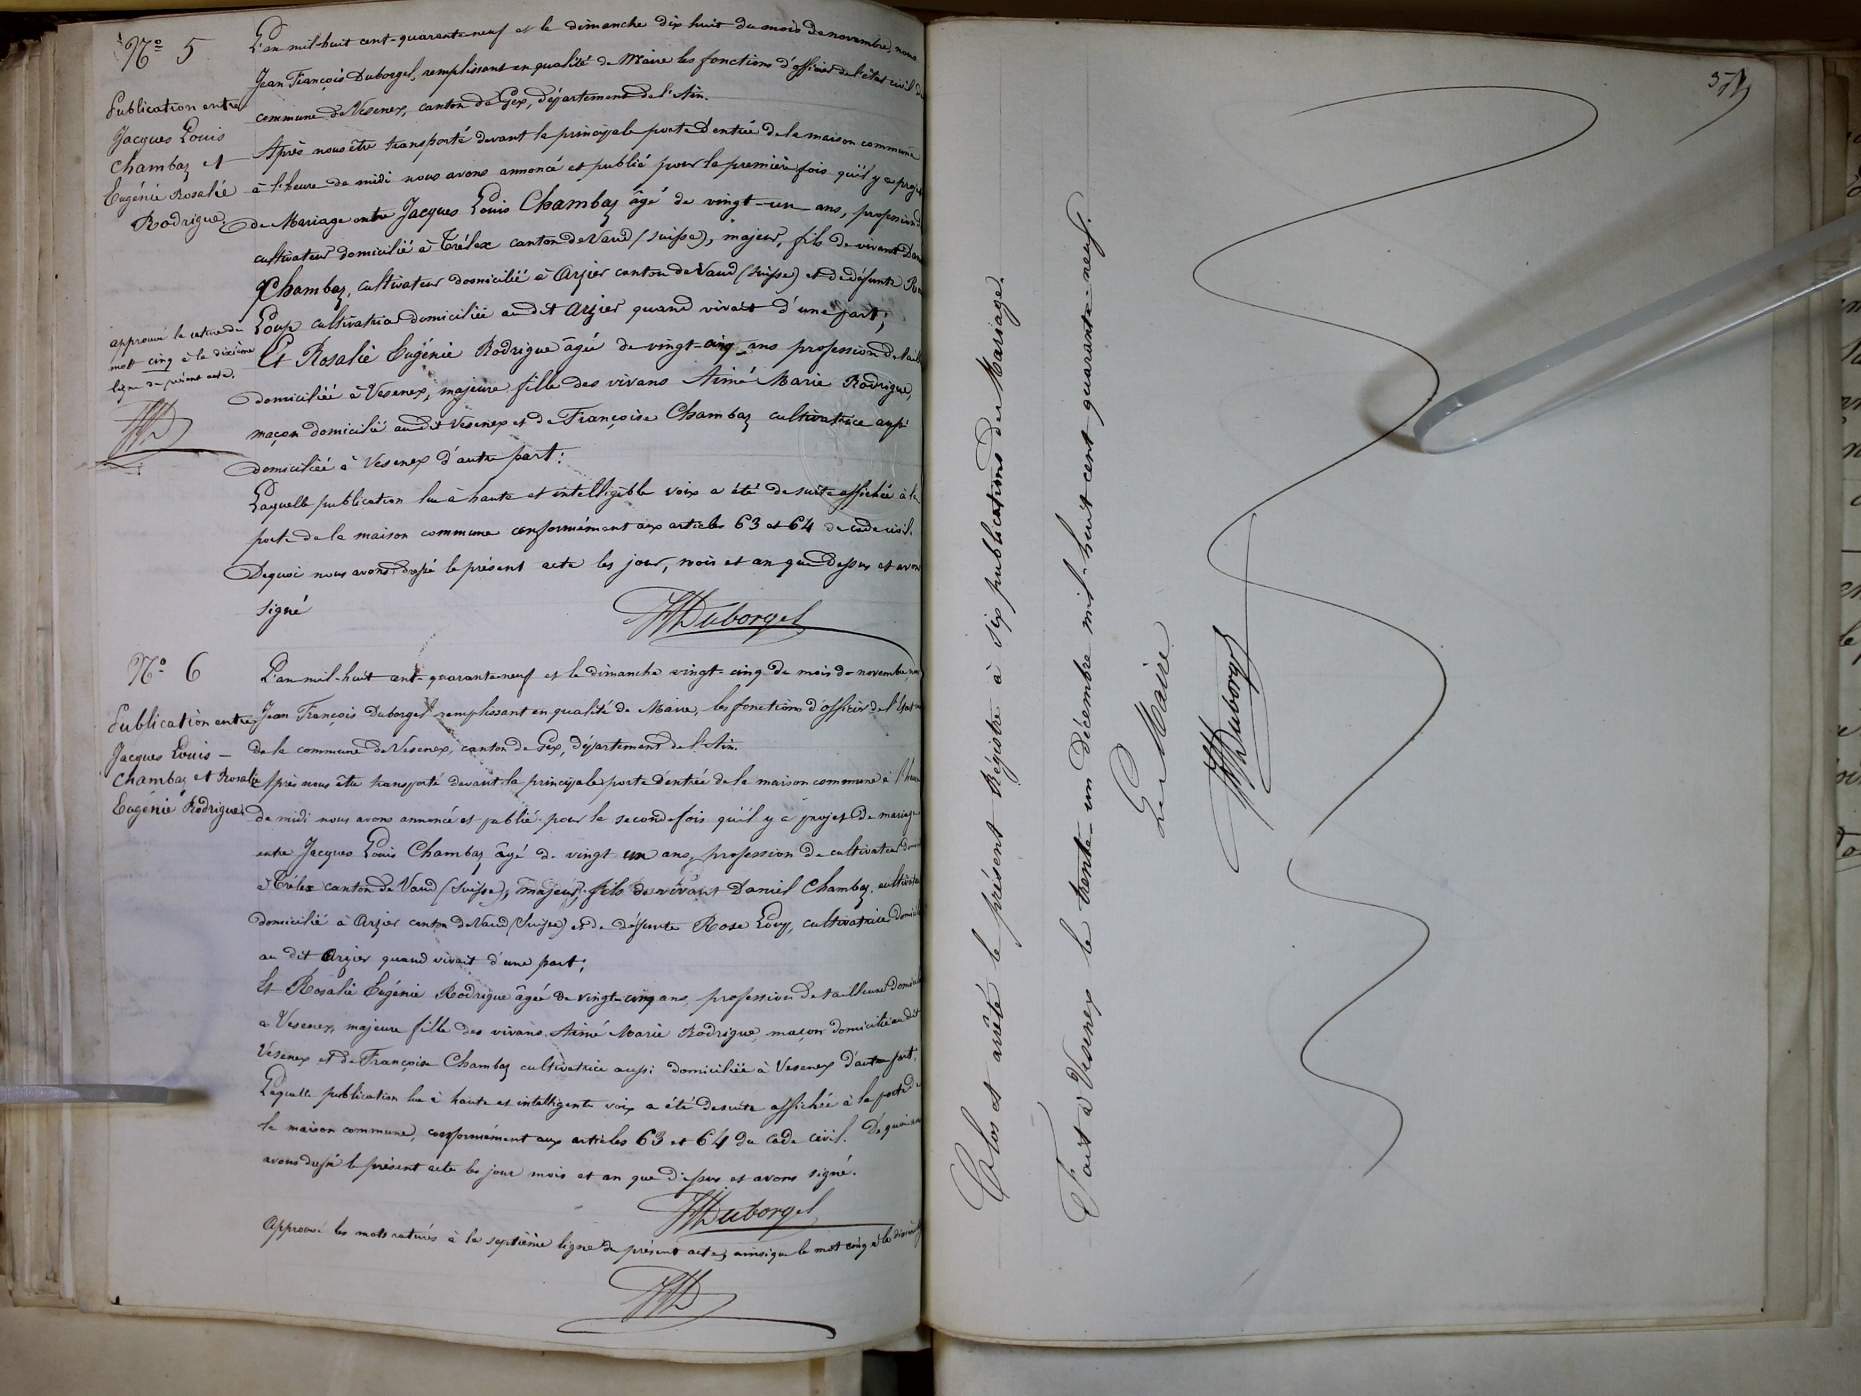 N.º 5
Publication entre
Jacques Louis
Chambaz et
Eugénie Rosalie
Rodrigue
L'an mil-huit cent-quarante-neuf et le dimanche dix huit du mois de novembre, nous
Jean François Duborgel, remplissant en qualité de Maire les fonctions d'officier de l'état civil de
commune de Vesenex, canton de Gex, département de l'Ain.
Après nous être transporté devant la principale porte d'entrée de la maison commune
à l'heure de midi nous avons annoncé et publié pour la première fois qu'il y a projet
de Mariage entre Jacques Louis Chambaz âgé de vingt-un ans, profession d
cultivateur domicilié à Trélex canton de Vaud (Suisse), majeur, fils de vivant Dan
Chambaz, cultivateur domicilié à Arzier canton de Vaud (Suisse) et de défunte Ro
Loup cultivatrice domiciliée au dit Arzier quand vivait d'une part;
Et Rosalie Eugénie Rodrigue âgée de vingt-cinq ans profession de taill
domiciliée à Vesenex, majeure fille des vivans Aimé Marie Rodrigue,
maçon domicilié au dit Vesenex et de Françoise Chambaz cultivatrice aussi
domiciliée à Vesenex d'autre part:
Laquelle publication lue à haute et intelligible voix a été de suite affichée à la
porte de la maison commune conformément aux articles 63 et 64 du code civil.
De quoi nous avons dressé le présent acte les jour, mois et an que dessus et avons
signé
JFDuborgel
approuvé la rature du
mot cinq à la dixième
ligne du présent acte.
JFD
N.º 6
Publication entre
Jacques Louis
Chambaz et Rosalie
Eugénie Rodrigue
L'an mil-huit cent-quarante-neuf et le dimanche vingt-cinq du mois de novembre, nous
Jean François Duborgel remplissant en qualité de Maire, les fonctions d'officier de l'Etat
de la commune de Vesenex, canton de Gex, département de l'Ain.
Après nous être transporté devant la principale porte d'entrée de la maison commune à l'heure
de midi nous avons annoncé et publié pour la seconde fois qu'il y a projet de mariage
entre Jacques Louis Chambaz âgé de vingt un ans, profession de cultivateur dom
à Trélex canton de Vaud (Suisse), majeur, fils de vivant Daniel Chambaz, cultivateur
domicilié à Arzier canton de Vaud (Suisse) et de défunte Rose Loup, cultivatrice domici
au dit Arzier quand vivait d'une part;
Et Rosalie Eugénie Rodrigue âgée de vingt-cinq ans, profession de tailleuse domicil
à Vesenex, majeure fille des vivans Aimé Marie Rodrigue, maçon domicilié au dit
Vesenex et de Françoise Chambaz cultivatrice aussi domiciliée à Vesenex d'autre part.
Laquelle publication lue à haute et intelligente voix a été de suite affichée à la porte de
la maison commune, conformément aux articles 63 et 64 du code civil. De quoi nous
avons dressé le présent acte les jour mois et an que dessus et avons signé.
JFDuborgel
Approuvé les mots raturés à la septième ligne du présent acte, ainsi que le mot cinq à la dixième
JFD
Clos et arrêté le présent Régistre à six publications de Mariage.
Fait à Vesenex le trente-un décembre mil-huit cent quarante-neuf.
Le Maire
JFDuborgel